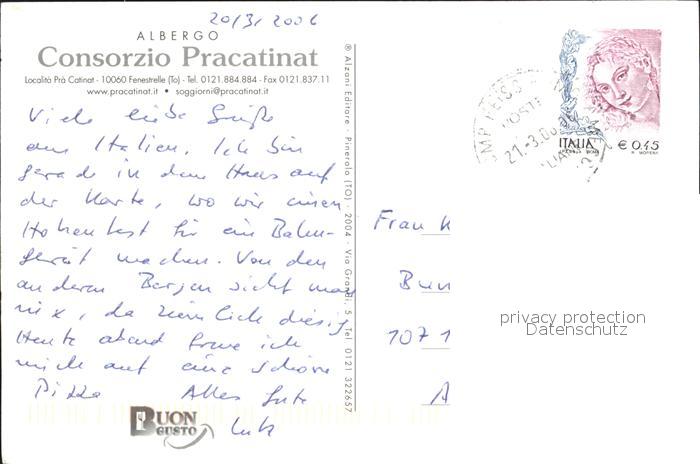 20/3/2006
ALBERGO
Consorzio Pracatinat
Località Prà Catinat - 10060 Fenestrelle (To) - Tel. 0121.884.884 - Fax 0121.837.11
www.pracatinat.it • soggiorni@pracatinat.it
Viele liebe Grüße
aus Italien. Ich bin
gerade in dem Haus auf
der Karte, wo wir einen
Höhentest für ein Bahn-
gerät machen. Von den
anderen Bergen sieht man
nix, da ziemlich diesig
Heute abend freue ich
mich auf eine schöne
Pizza Alles Gute
Lutz
BUON
GUSTO
® Alzani Editore - Pinerolo (TO) - 2004 - Via Grandi, 5 - Tel. 0121 322657
POSTE
21-3-06
ITALIA
€ 0,45
Frau K
Bun
107 1
A
privacy protection
Datenschutz